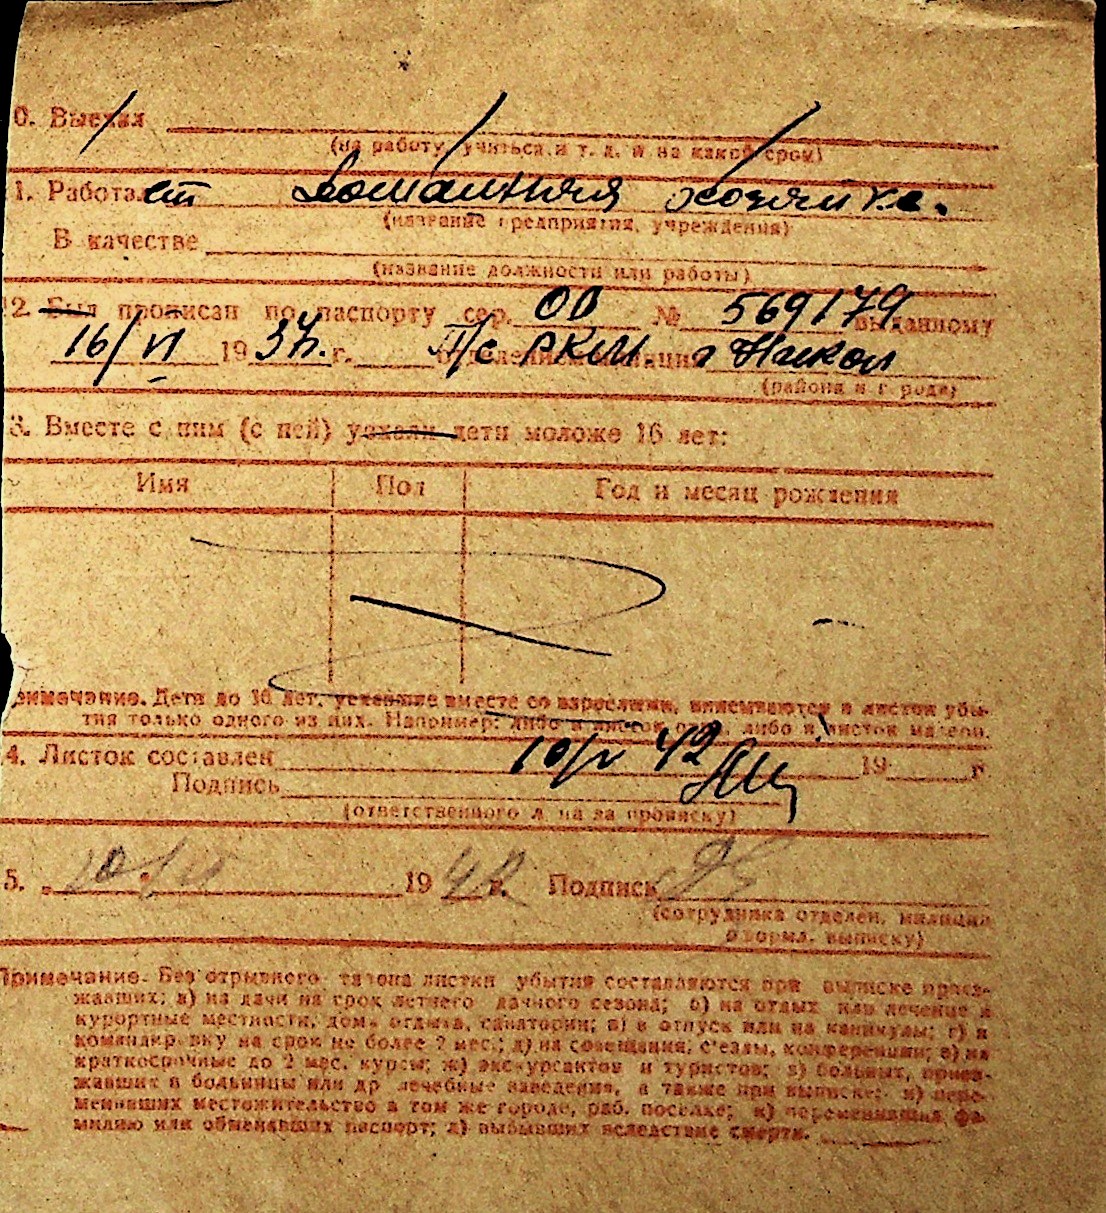 0. Выехал
(на работу, учиться и т. д. и на какой срок)
1. Работает домашняя хозяйка.
(название предприятия, учреждения)
В качестве
(название должности или работы)
2. Был прописан по паспорту сер. ОО № 569179 выданному
16/VI 1937 г. П/с РКМ. г
(района и города)
3. Вместе с ним (с ней) уехали дети моложе 16 лет:
Имя Пол Год и месяц рождения
Примечание. Дети до 16 лет, уехавшие вместе со взрослыми, вписываются в листок убы-
тия только одного из них. Например: либо в листок отца, либо в листок матери.
4. Листок составлен 10/V 42 19 г.
Подпись
(ответственного л. на за прописку)
5. 1942 г. Подпись
(сотрудника отделен. милиции
оформл. выписку)
Примечание. Без отрывного талона листки убытия составляются при выписке приез-
жавших: а) на дачи на срок летнего дачного сезона; б) на отдых или лечение в
курортные местности, дома отдыха, санатории; в) в отпуск или на каникулы; г) в
командировку на срок не более 2 мес.; д) на совещания, съезды, конференции; е) на
краткосрочные до 2 мес. курсы; ж) экскурсантов и туристов; з) больных, приез-
жавших в больницы или др лечебные заведения, а также при выписке: и) пере-
менивших местожительство в том же городе, раб. поселке; к) переменивших фа-
милию или обменявших паспорт; л) выбывших вследствие смерти.